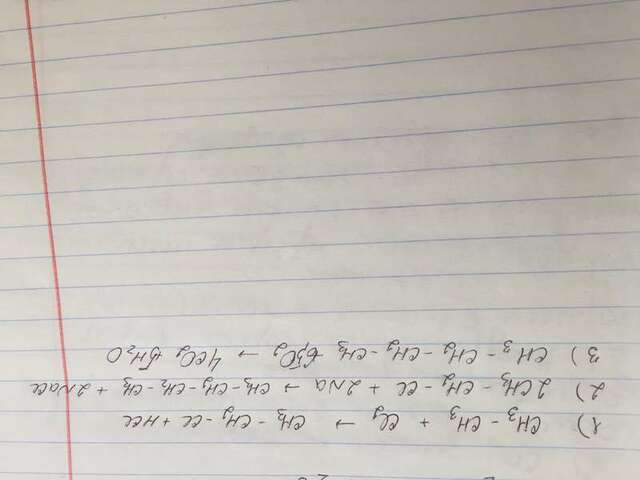 1) CH₃ - CH₃ + Cl₂ → CH₃ - CH₂ - Cl + HCl
2) 2CH₃ - CH₂ - Cl + 2Na → CH₃ - CH₂ - CH₂ - CH₃ + 2NaCl
3) CH₃ - CH₂ - CH₂ - CH₃ 6,5O₂ → 4CO₂ 5H₂O